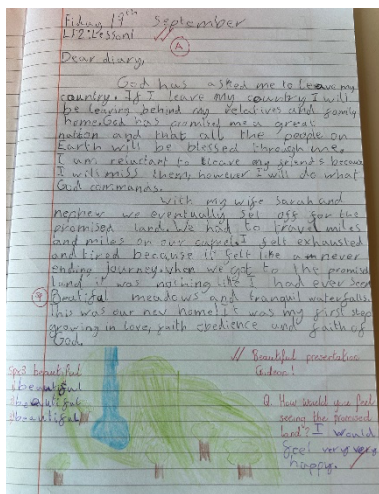 Friday 19th September
LF2: Lesson 1
A
Dear diary,
God has asked me to leave my
country. If I leave my country I will
be leaving behind my relatives and family
home. God has promised me a great
nation and that all the people on
Earth will be blessed through me.
I am reluctant to leave my friends because
I will miss them, however I will do what
God commands.
With my wife Sarah and
nephew we eventually set off for the
promised land. We had to travel miles
and miles on our camels. I felt exhausted
and tired because it felt like a never
ending journey. When we got to the promised
land it was nothing like I had ever seen
Beautiful meadows and tranquil waterfalls.
This was our new home! It was my first step
growing in love, faith obedience and faith of
God.
Beautiful presentation
Spx3 beautiful
1beautiful
2beautiful
3beautiful
Q. How would you feel
seeing the promised
land? I would
feel very very
happy.